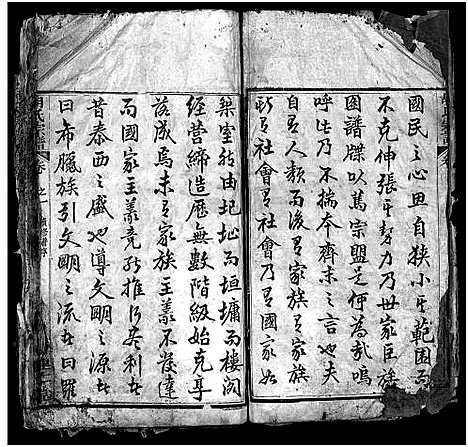 國民之心思自狹小其範圍而
不克伸張其勢力乃世家巨族
圖譜牒以篤宗盟是何為哉嗚
呼此乃不揣本齊末之言也夫
自有人類而後有家族有家族
斯有社會有社會乃有國家如
築室然由圯址而垣墉而樓閣
經營締造歷無數階級始克享
落成焉未有家族主義不發達
而國家主義竟能推行盡利者
昔泰西之盛也導文明之源者
曰希臘族引文明之流者曰羅